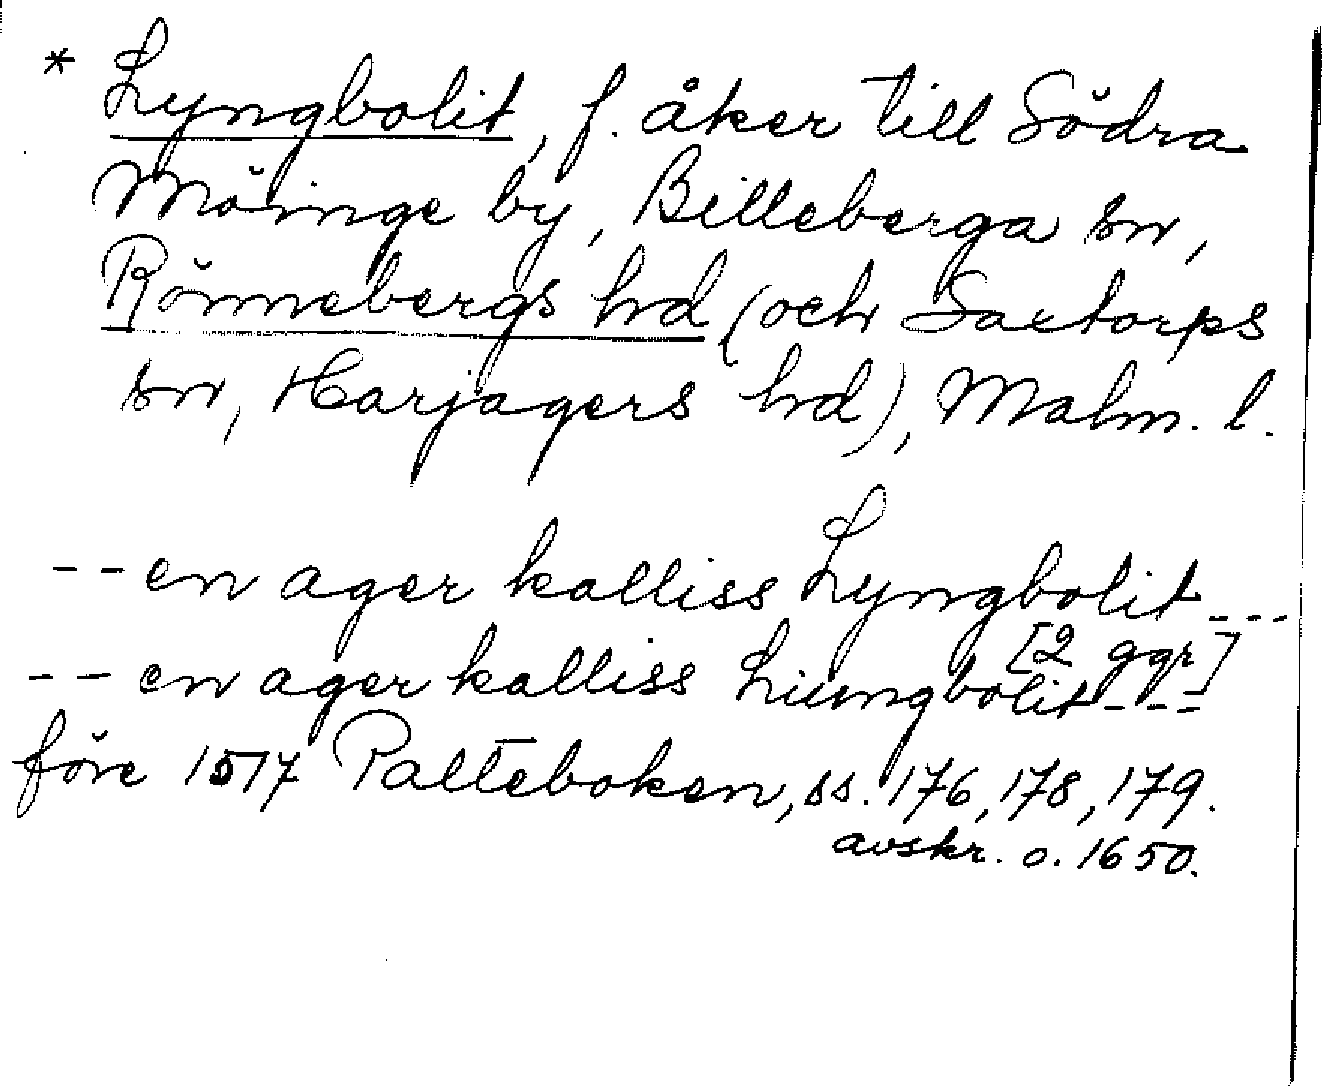 * Lyngbolit, f. åker till Södra
Möinge by, Billeberga sn,
Rönnebergs hd (och Saxtorps
sn, Harjagers hd), Malm. l.
-- en ager kalliss Lyngbolit ---
[2 ggr]
-- en ager kalliss Liungbolit ---
före 1517 Palteboken, ss. 176, 178, 179.
avskr. o. 1650.